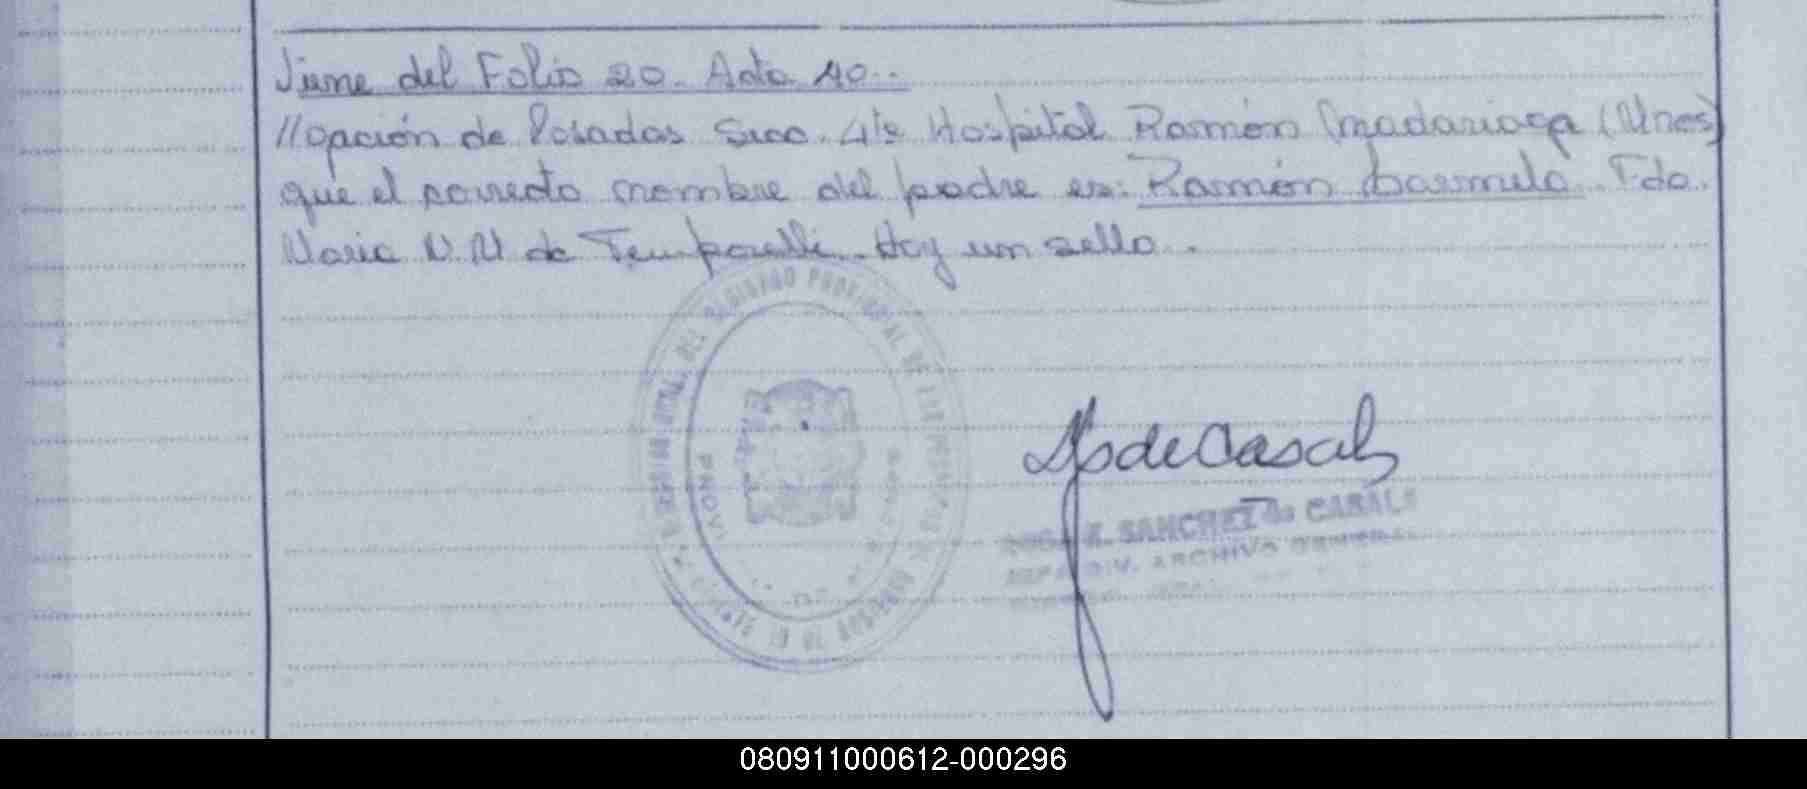 Viene del Folio 20. Acta 40..
//gación de Posadas Secc. 4ta Hospital Ramón Madariaga (Mnes)
que el correcto nombre del padre es: Ramón Carmelo. Fdo.
Maria N.N de Temporelli.. Hay un sello.
REGISTRO PROVINCIAL DE LAS PERSONAS
PROVI
SdeCasals
K. SANCHEZ de CASALS
DIV. ARCHIVO GENERAL
080911000612-000296